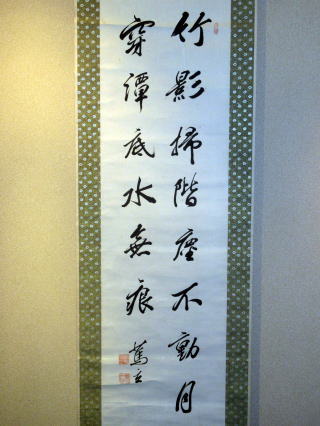 竹影掃階塵不動月
穿潭底水無痕